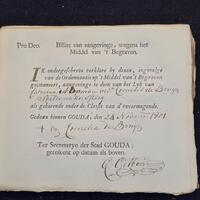 Pro Deo. Billet van aangevinge, wegens het
Middel van 't Begraven.
IK ondergeschreven verklare by dezen, ingevolge
van de Ordonnantie op 't Middel van 't Begraven
geëmaneert, aangevinge te doen van het Lyk van
Cornelis de Bruyn
als gehorende onder de Classe van d'onvermogende.
Gedaan binnen GOUDA, den 24 1801
Cornelis de Bruyn
Ter Secretarye der Stad GOUDA,
getekent op datum als boven.